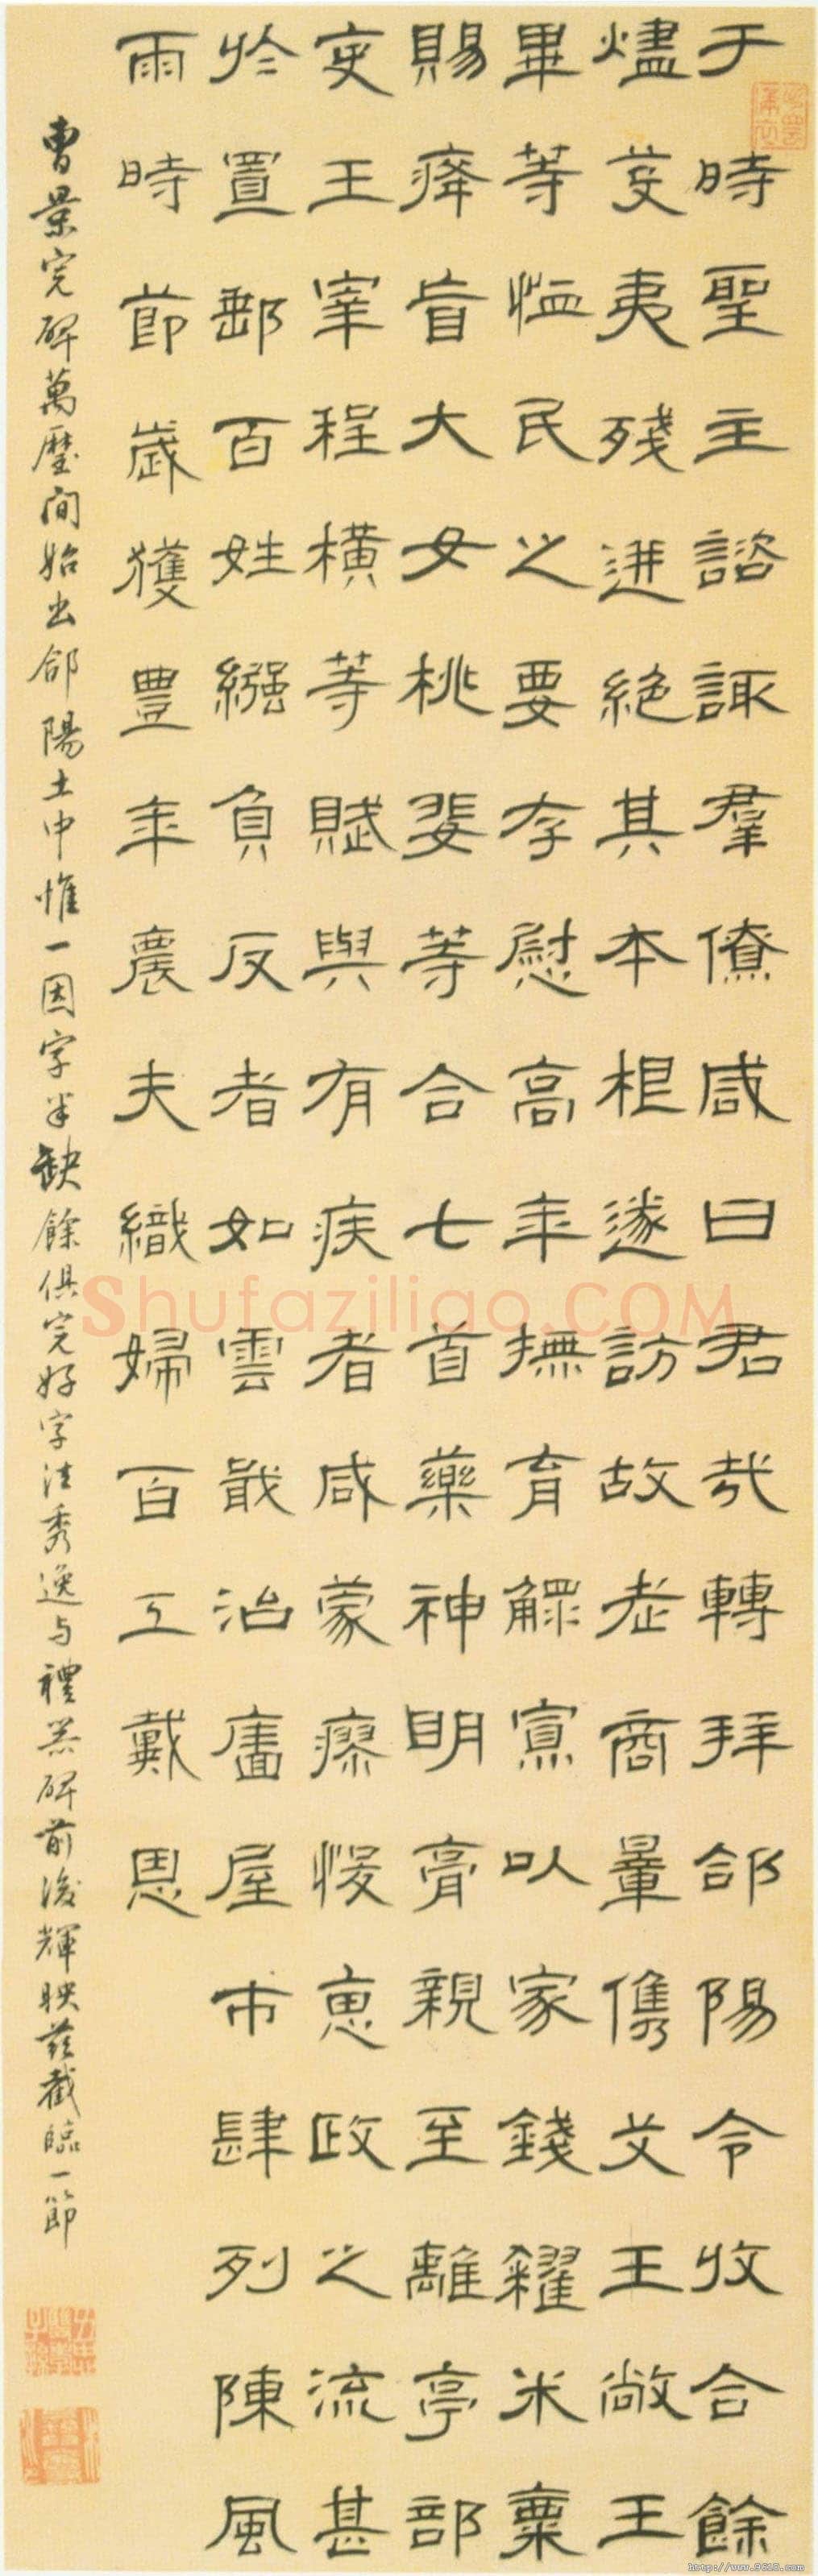 于時聖主諮諏羣僚咸曰君哉轉拜郃陽令收合餘
燼芟夷殘迸絕其本根遂訪故老商暈儁艾王敞王
畢等恤民之要存慰高年撫育鰥寡以家錢糴米粟
賜瘽盲大女桃婓等合七首藥神明膏親至離亭部
吏王宰程橫等賦與有疾者咸蒙瘳悛恵政之流甚
於置郵百姓繦負反者如雲戢治廧屋市肆列陳風
雨時節歲獲豐年農夫織婦百工戴恩
曹景完碑萬歷間始出郃陽土中惟一因字半缺餘俱完好字法秀逸与禮器碑前後輝映茲截臨一節
Shufaziliao.COM
http://www.9610.com